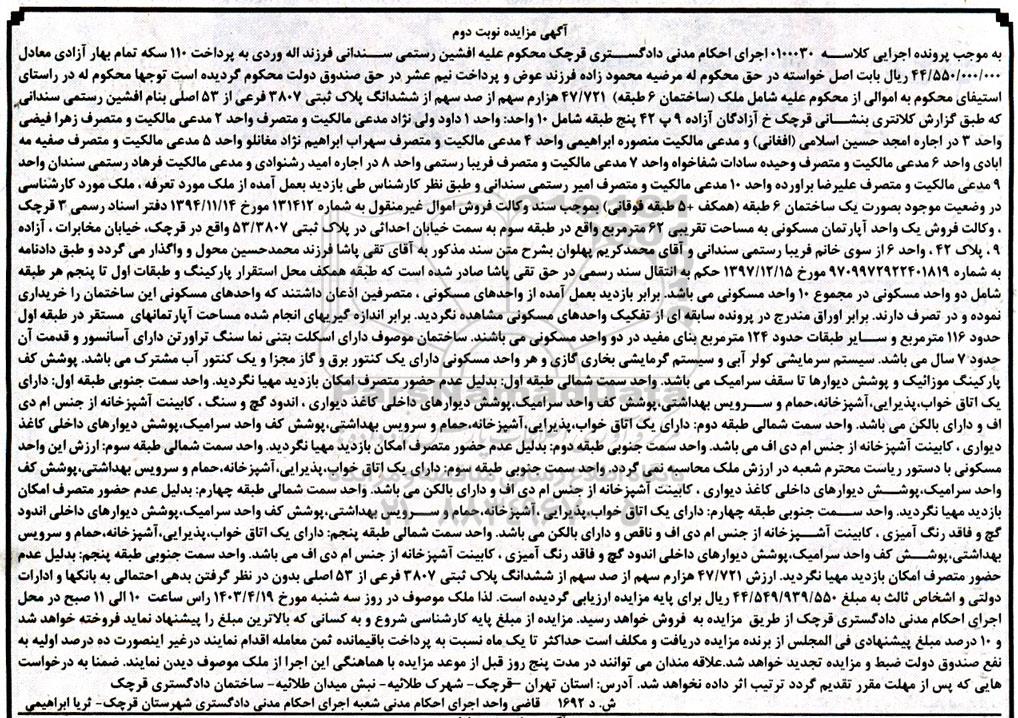 آگهی مزایده نوبت دوم
به موجب پرونده اجرایی کلاسه ۰۱۰۰۰۳۰ اجرای احکام مدنی دادگستری قرچک محکوم علیه افشین رستمی سندانی فرزند اله وردی به پرداخت ۱۱۰ سکه تمام بهار آزادی معادل
۴۴/۵۵۰/۰۰۰/۰۰۰ ریال بابت اصل خواسته در حق محکوم له مرضیه محمود زاده فرزند عوض و پرداخت نیم عشر در حق صندوق دولت محکوم گردیده است توجها محکوم له در راستای
استیفای محکوم به اموالی از محکوم علیه شامل ملک (ساختمان ۶ طبقه) ۴۷/۷۲۱ هزارم سهم از صد سهم از ششدانگ پلاک ثبتی ۳۸۰۷ فرعی از ۵۳ اصلی بنام افشین رستمی سندانی
که طبق گزارش کلانتری بنشانی قرچک خ آزادگان آزاده ۹ پ ۴۲ پنج طبقه شامل ۱۰ واحد: واحد ۱ داود ولی نژاد مدعی مالکیت و متصرف واحد ۲ مدعی مالکیت و متصرف زهرا فیضی
واحد ۳ در اجاره امجد حسین اسلامی (افغانی) و مدعی مالکیت منصوره ابراهیمی واحد ۴ مدعی مالکیت و متصرف سهراب ابراهیم نژاد مغانلو واحد ۵ مدعی مالکیت و متصرف صفیه مه
ابادی واحد ۶ مدعی مالکیت و متصرف وحیده سادات شفاخواه واحد ۷ مدعی مالکیت و متصرف فریبا رستمی واحد ۸ در اجاره امید رشنوادی و مدعی مالکیت فرهاد رستمی سندان واحد
۹ مدعی مالکیت و متصرف علیرضا براورده واحد ۱۰ مدعی مالکیت و متصرف امیر رستمی سندانی و طبق نظر کارشناس طی بازدید بعمل آمده از ملک مورد تعرفه ، ملک مورد کارشناسی
در وضعیت موجود بصورت یک ساختمان ۶ طبقه (همکف +۵ طبقه فوقانی) بموجب سند وکالت فروش اموال غیرمنقول به شماره ۱۳۱۴۱۲ مورخ ۱۳۹۴/۱۱/۱۴ دفتر اسناد رسمی ۳ قرچک
، وکالت فروش یک واحد آپارتمان مسکونی به مساحت تقریبی ۶۲ مترمربع واقع در طبقه سوم به سمت خیابان احداثی در پلاک ثبتی ۵۳/۳۸۰۷ واقع در قرچک، خیابان مخابرات ، آزاده
۹ ، پلاک ۴۲ ، واحد ۶ از سوی خانم فریبا رستمی سندانی و آقای محمدکریم پهلوان بشرح متن سند مذکور به آقای تقی پاشا فرزند محمدحسین محول و واگذار می گردد و طبق دادنامه
به شماره ۹۷۰۹۹۷۲۹۲۲۴۰۱۸۱۹ مورخ ۱۳۹۷/۱۲/۱۵ حکم به انتقال سند رسمی در حق تقی پاشا صادر شده است که طبقه همکف محل استقرار پارکینگ و طبقات اول تا پنجم هر طبقه
شامل دو واحد مسکونی در مجموع ۱۰ واحد مسکونی می باشد. برابر بازدید بعمل آمده از واحدهای مسکونی ، متصرفین اذعان داشتند که واحدهای مسکونی این ساختمان را خریداری
نموده و در تصرف دارند. برابر اوراق مندرج در پرونده سابقه ای از تفکیک واحدهای مسکونی مشاهده نگردید. برابر اندازه گیریهای انجام شده مساحت آپارتمانهای مستقر در طبقه اول
حدود ۱۱۶ مترمربع و سایر طبقات حدود ۱۲۴ مترمربع بنای مفید در دو واحد مسکونی می باشند. ساختمان موصوف دارای اسکلت بتنی نما سنگ تراورتن دارای آسانسور و قدمت آن
حدود ۷ سال می باشد. سیستم سرمایشی کولر آبی و سیستم گرمایشی بخاری گازی و هر واحد مسکونی دارای یک کنتور برق و گاز مجزا و یک کنتور آب مشترک می باشد. پوشش کف
پارکینگ موزائیک و پوشش دیوارها تا سقف سرامیک می باشد. واحد سمت شمالی طبقه اول: بدلیل عدم حضور متصرف امکان بازدید مهیا نگردید. واحد سمت جنوبی طبقه اول: دارای
یک اتاق خواب،پذیرایی،آشپزخانه،حمام و سرویس بهداشتی،پوشش کف واحد سرامیک،پوشش دیوارهای داخلی کاغذ دیواری ، اندود گچ و سنگ ، کابینت آشپزخانه از جنس ام دی
اف و دارای بالکن می باشد. واحد سمت شمالی طبقه دوم: دارای یک اتاق خواب،پذیرایی،آشپزخانه،حمام و سرویس بهداشتی،پوشش کف واحد سرامیک،پوشش دیوارهای داخلی کاغذ
دیواری ، کابینت آشپزخانه از جنس ام دی اف می باشد. واحد سمت جنوبی طبقه دوم: بدلیل عدم حضور متصرف امکان بازدید مهیا نگردید. واحد سمت شمالی طبقه سوم: ارزش این واحد
مسکونی با دستور ریاست محترم شعبه در ارزش ملک محاسبه نمی گردد. واحد سمت جنوبی طبقه سوم: دارای یک اتاق خواب،پذیرایی،آشپزخانه،حمام و سرویس بهداشتی،پوشش کف
واحد سرامیک،پوشش دیوارهای داخلی کاغذ دیواری ، کابینت آشپزخانه از جنس ام دی اف و دارای بالکن می باشد. واحد سمت شمالی طبقه چهارم: بدلیل عدم حضور متصرف امکان
بازدید مهیا نگردید. واحد سمت جنوبی طبقه چهارم: دارای یک اتاق خواب،پذیرایی ، آشپزخانه،حمام و سرویس بهداشتی،پوشش کف واحد سرامیک،پوشش دیوارهای داخلی اندود
گچ و فاقد رنگ آمیزی ، کابینت آشپزخانه از جنس ام دی اف و ناقص و دارای بالکن می باشد. واحد سمت شمالی طبقه پنجم: دارای یک اتاق خواب،پذیرایی،آشپزخانه،حمام و سرویس
بهداشتی،پوشش کف واحد سرامیک،پوشش دیوارهای داخلی اندود گچ و فاقد رنگ آمیزی ، کابینت آشپزخانه از جنس ام دی اف می باشد. واحد سمت جنوبی طبقه پنجم: بدلیل عدم
حضور متصرف امکان بازدید مهیا نگردید. ارزش ۴۷/۷۲۱ هزارم سهم از صد سهم از ششدانگ پلاک ثبتی ۳۸۰۷ فرعی از ۵۳ اصلی بدون در نظر گرفتن بدهی احتمالی به بانکها و ادارات
دولتی و اشخاص ثالث به مبلغ ۴۴/۵۴۹/۹۳۹/۵۵۰ ریال برای پایه مزایده ارزیابی گردیده است. لذا ملک موصوف در روز سه شنبه مورخ ۱۴۰۳/۴/۱۹ راس ساعت ۱۰ الی ۱۱ صبح در محل
اجرای احکام مدنی دادگستری قرچک از طریق مزایده به فروش خواهد رسید. مزایده از مبلغ پایه کارشناسی شروع و به کسانی که بالاترین مبلغ را پیشنهاد نماید فروخته خواهد شد
و ۱۰ درصد مبلغ پیشنهادی فی المجلس از برنده مزایده دریافت و مکلف است حداکثر تا یک ماه نسبت به پرداخت باقیمانده ثمن معامله اقدام نمایند درغیر اینصورت ده درصد اولیه به
نفع صندوق دولت ضبط و مزایده تجدید خواهد شد.علاقه مندان می توانند در مدت پنج روز قبل از موعد مزایده با هماهنگی این اجرا از ملک موصوف دیدن نمایند. ضمنا به درخواست
هایی که پس از مهلت مقرر تقدیم گردد ترتیب اثر داده نخواهد شد. آدرس: استان تهران –قرچک- شهرک طلائیه- نبش میدان طلائیه- ساختمان دادگستری قرچک
ش. د ۱۶۹۲ قاضی واحد اجرای احکام مدنی شعبه اجرای احکام مدنی دادگستری شهرستان قرچک- ثریا ابراهیمی